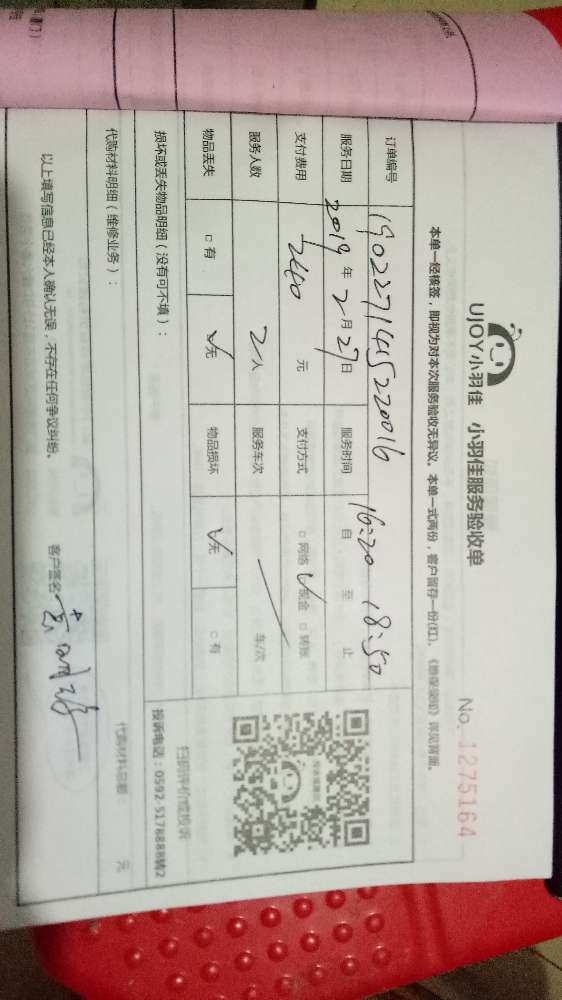 UJOY小羽佳 小羽佳服务验收单
No. 1275164
本单一经核签，即视为对本次服务验收无异议。本单一式两份，客户留存一份(红)。
订单编号 190227145220016
服务日期 2019 年 2 月 27 日 服务时间 16:20 自 至 18:50 止
支付费用 240 元 支付方式 □网络 ✓现金 □转账
服务人数 2人 服务车次 车/次
物品丢失 □有 ✓无 物品损坏 ✓无 □有
扫码评价或投诉
投诉电话：0592-5178888转2
损坏或丢失物品明细（没有可不填）：
代购材料明细（维修业务）：
代购材料总额： 元
以上填写信息已经本人确认无误，不存在任何争议纠纷。
客户签名